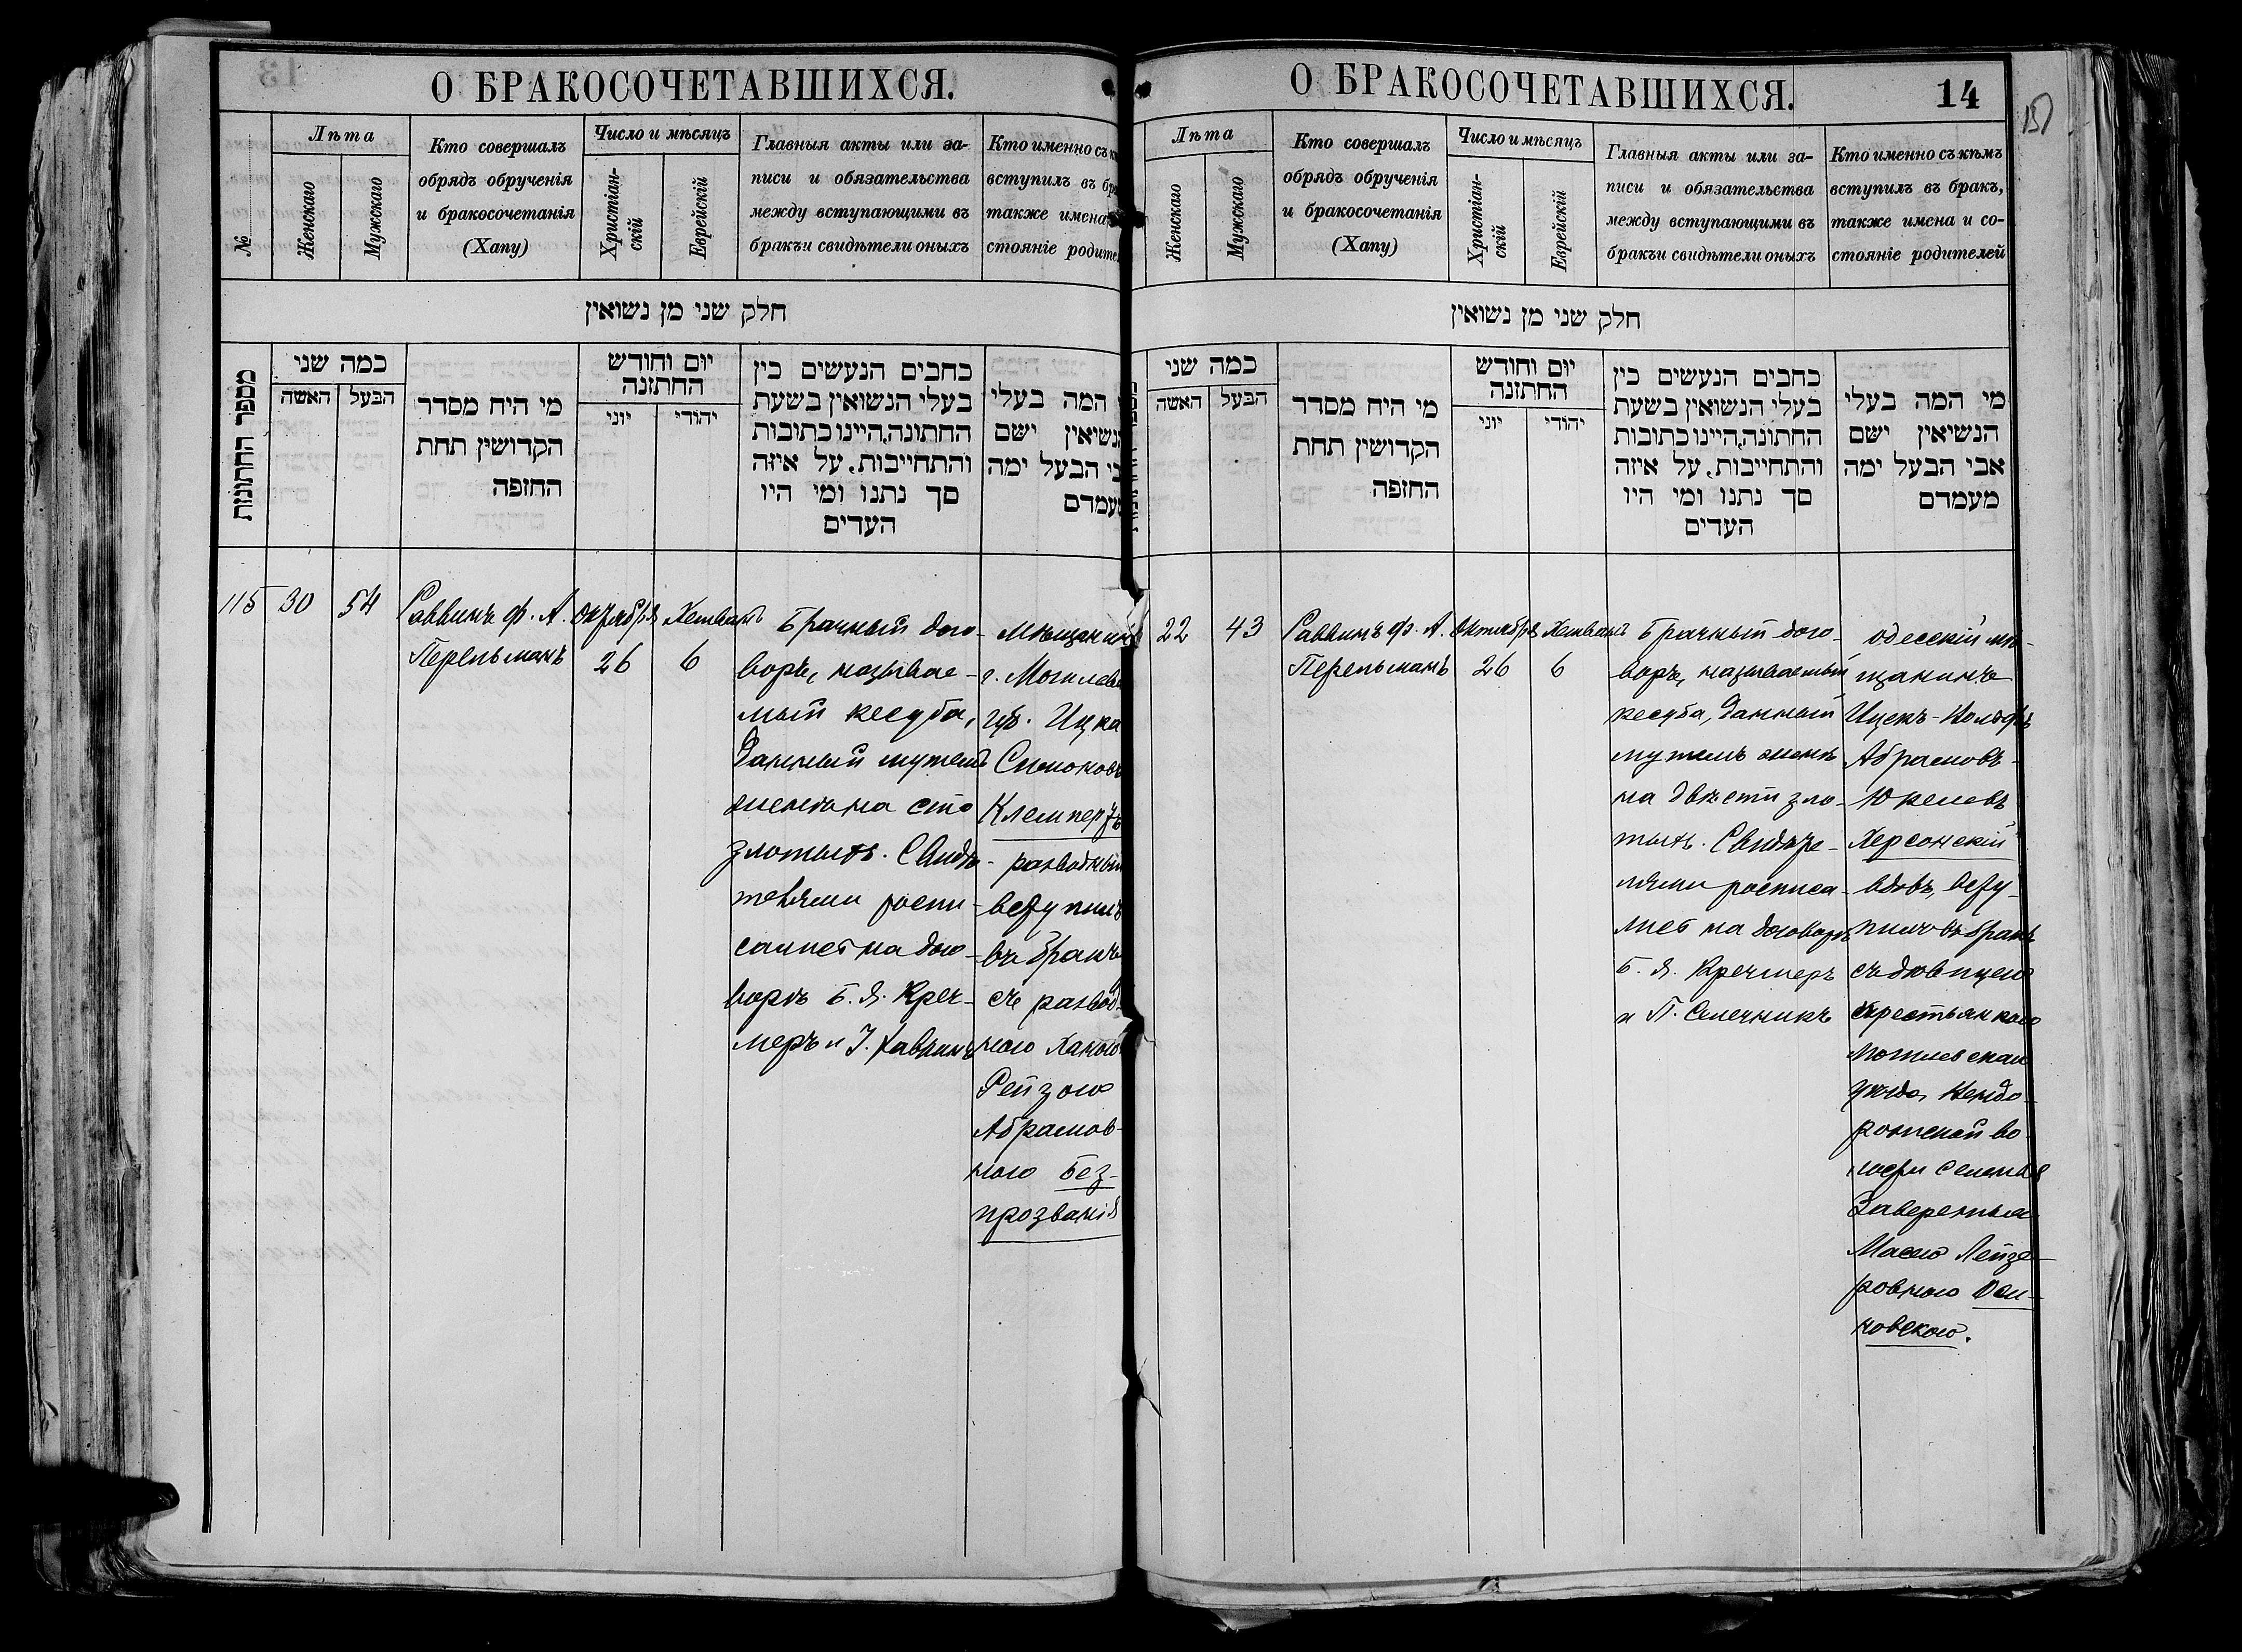 О БРАКОСОЧЕТАВШИХСЯ.
№
Лѣта
Женскаго
Мужскаго
Кто совершалъ
обрядъ обрученія
и бракосочетанія
(Хапу)
Число и мѣсяцъ
Христіан-
скій
Еврейскій
Главныя акты или за-
писи и обязательства
между вступающими въ
бракъи свидѣтели оныхъ
Кто именно съ
вступилъ въ
также имена
стояніе
חלק שני מן נשואין
מספר החתונות
כמה שני
האשה
הבעל
מי היח מסדר
הקדושין תחת
החופה
יום וחודש
החתונה
יוני
יהודי
כתבים הנעשים בין
בעלי הנשואין בשעת
החתונה,היינו כתובות
והתחייבות, על איזה
סך נתנו ומי היו
העדים
המה בעלי
ישם
הבעל ימה
115
30
54
Раввинъ Ф. А.
Перельманъ
Октября
26
Хешванъ
6
Брачный дого-
воръ, называе-
мый кесуба,
данный мужемъ
женѣ на сто
злотыхъ. Свидѣ-
телями распи-
сались на дого-
ворѣ Б. Я. Креч-
меръ и
Мѣщанинъ
г. Могилева
губ. Ицка
Клемперъ
разводный
вступилъ
въ бракъ
съ развод-
ною Ханою
Рейзою
Абрамов-
ною Без-
прозванія
О БРАКОСОЧЕТАВШИХСЯ.
14
Лѣта
Женскаго
Мужскаго
Кто совершалъ
обрядъ обрученія
и бракосочетанія
(Хапу)
Число и мѣсяцъ
Христіан-
скій
Еврейскій
Главныя акты или за-
писи и обязательства
между вступающими въ
бракъи свидѣтели оныхъ
Кто именно съ кѣмъ
вступилъ въ бракъ,
также имена и со-
стояніе родителей
חלק שני מן נשואין
כמה שני
האשה
הבעל
מי היח מסדר
הקדושין תחת
החופה
יום וחודש
החתונה
יוני
יהודי
כתבים הנעשים בין
בעלי הנשואין בשעת
החתונה,היינו כתובות
והתחייבות, על איזה
סך נתנו ומי היו
העדים
מי המה בעלי
הנשיאין ישם
אבי הבעל ימה
מעמדם
22
43
Раввинъ Ф. А.
Перельманъ
Октября
26
Хешванъ
6
Брачный дого-
воръ, называемый
кесуба, данный
мужемъ женѣ
на двѣсти зло-
тыхъ. Свидѣте-
лями росписа-
лись на договорѣ
Б. Я. Кречмеръ
и П.
одесскій мѣ-
щанинъ
Ицекъ-Вольфъ
Абрамовъ
Херсонскій
вдовъ, всту-
пилъ въ бракъ
съ вдовицею
крестьянкою
Могилевскаго
уѣзда
во-
лости селенія
Масею Лейзе-
ровною
новскою.